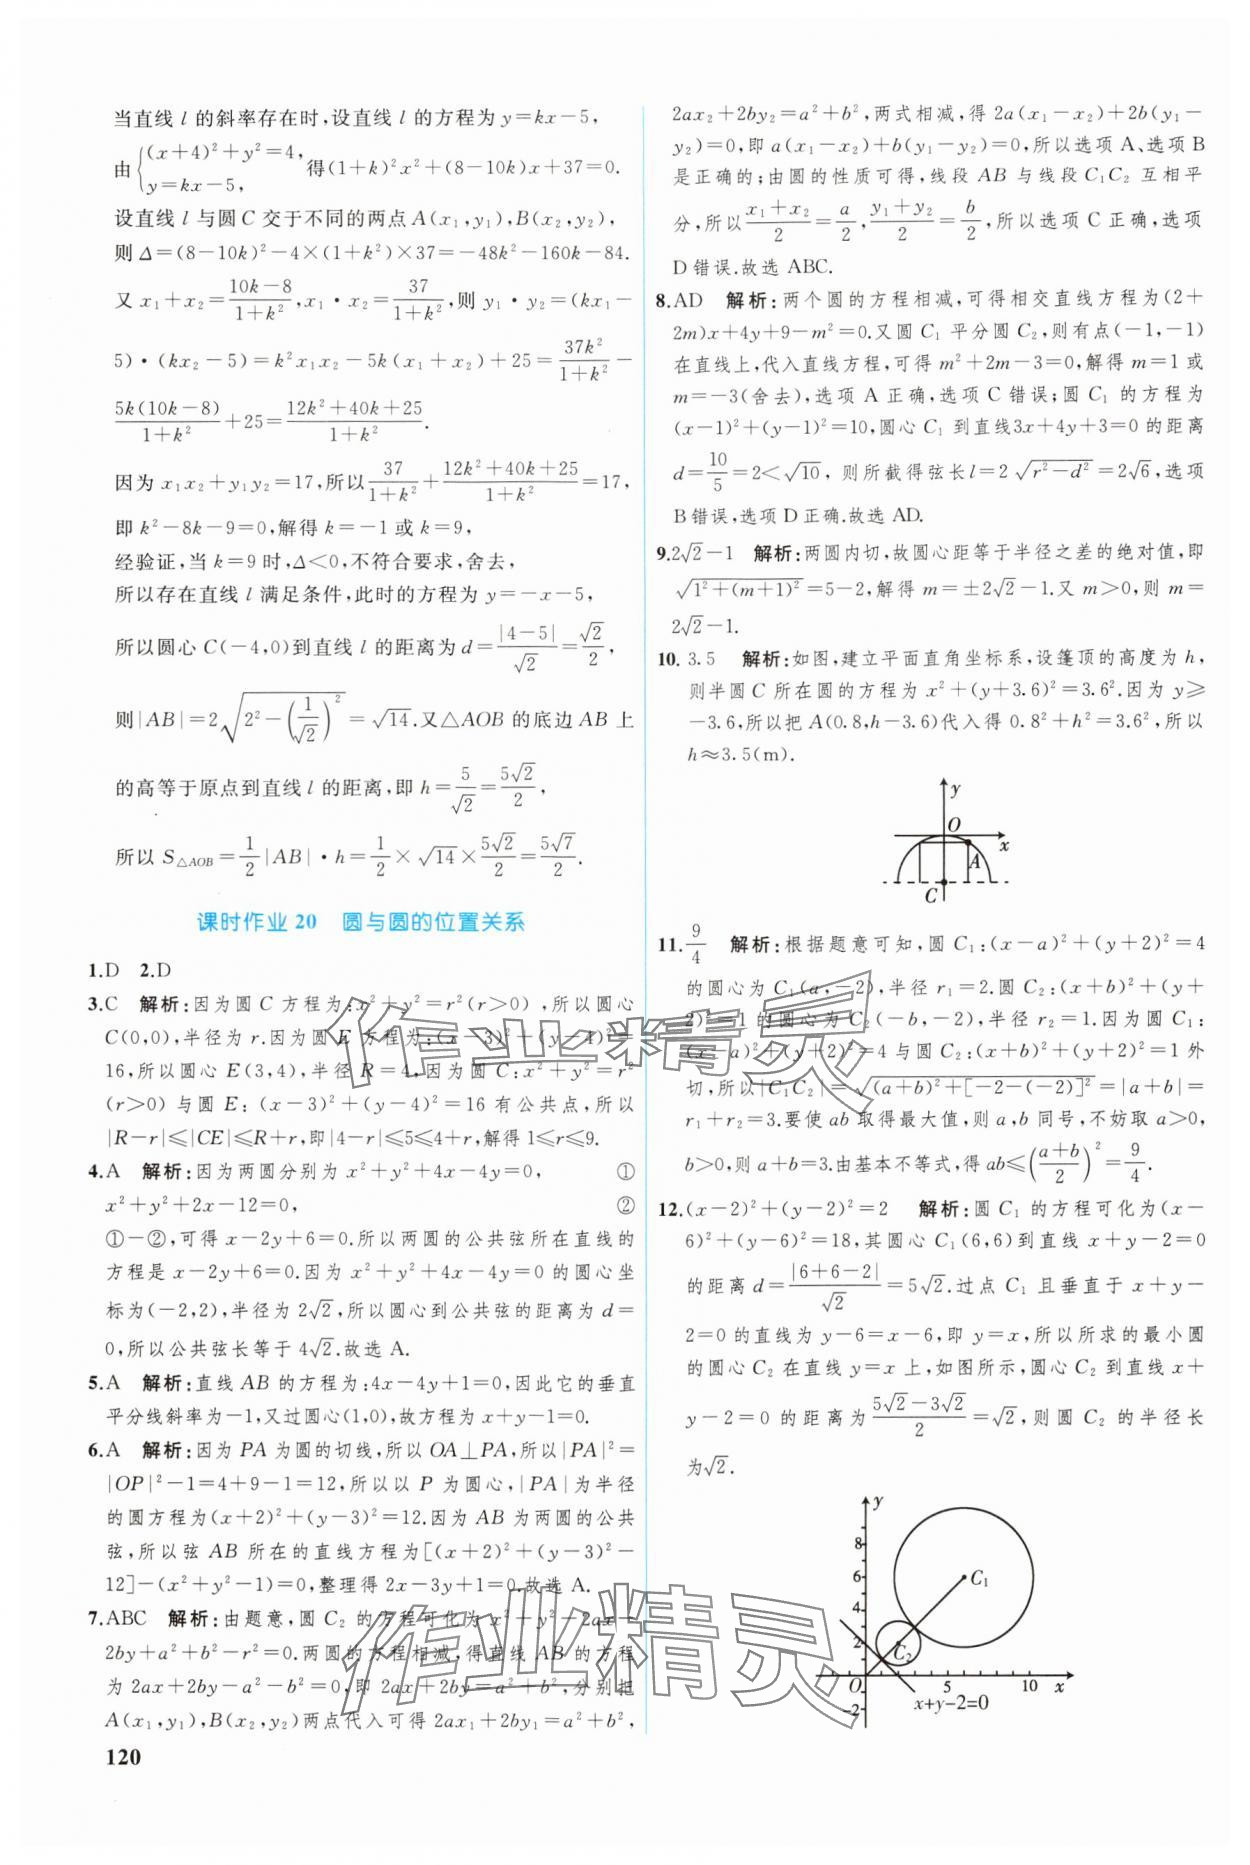 当直线 l 的斜率存在时,设直线 l 的方程为 y=kx-5,
由{(x+4)²+y²=4, y=kx-5, 得(1+k)²x²+(8-10k)x+37=0.
设直线 l 与圆 C 交于不同的两点 A(x₁,y₁),B(x₂,y₂),
则 Δ=(8-10k)²-4×(1+k²)×37=-48k²-160k-84.
又 x₁+x₂=(10k-8)/(1+k²),x₁·x₂=37/(1+k²),则 y₁·y₂=(kx₁-
5)·(kx₂-5)=k²x₁x₂-5k(x₁+x₂)+25=37k²/(1+k²)-
5k(10k-8)/(1+k²)+25=(12k²+40k+25)/(1+k²).
因为 x₁x₂+y₁y₂=17,所以37/(1+k²)+(12k²+40k+25)/(1+k²)=17,
即 k²-8k-9=0,解得 k=-1 或 k=9,
经验证,当 k=9 时,Δ<0,不符合要求,舍去,
所以存在直线 l 满足条件,此时的方程为 y=-x-5,
所以圆心 C(-4,0)到直线 l 的距离为 d=|4-5|/√2=√2/2,
则|AB|=2√(2²-(1/√2)²)=√14.又△AOB 的底边 AB 上
的高等于原点到直线 l 的距离,即 h=5/√2=5√2/2,
所以 S△AOB=1/2|AB|·h=1/2×√14×5√2/2=5√7/2.
课时作业 20 圆与圆的位置关系
1.D 2.D
3.C 解析:因为圆 C 方程为:x²+y²=r²(r>0),所以圆心
C(0,0),半径为 r.因为圆 E 方程为:(x-3)²+(y-4)²=
16,所以圆心 E(3,4),半径 R=4,因为圆 C:x²+y²=r²
(r>0)与圆 E:(x-3)²+(y-4)²=16 有公共点,所以
|R-r|≤|CE|≤R+r,即|4-r|≤5≤4+r,解得 1≤r≤9.
4.A 解析:因为两圆分别为 x²+y²+4x-4y=0, ①
x²+y²+2x-12=0, ②
①-②,可得 x-2y+6=0.所以两圆的公共弦所在直线的
方程是 x-2y+6=0.因为 x²+y²+4x-4y=0 的圆心坐
标为(-2,2),半径为 2√2,所以圆心到公共弦的距离为 d=
0,所以公共弦长等于 4√2.故选 A.
5.A 解析:直线 AB 的方程为:4x-4y+1=0,因此它的垂直
平分线斜率为-1,又过圆心(1,0),故方程为 x+y-1=0.
6.A 解析:因为 PA 为圆的切线,所以 OA⊥PA,所以|PA|²=
|OP|²-1=4+9-1=12,所以以 P 为圆心,|PA|为半径
的圆方程为(x+2)²+(y-3)²=12.因为 AB 为两圆的公共
弦,所以弦 AB 所在的直线方程为[(x+2)²+(y-3)²-
12]-(x²+y²-1)=0,整理得 2x-3y+1=0.故选 A.
7.ABC 解析:由题意,圆 C₂ 的方程可化为 x²+y²-2ax-
2by+a²+b²-r²=0.两圆的方程相减,得直线 AB 的方程
为 2ax+2by-a²-b²=0,即 2ax+2by=a²+b²,分别把
A(x₁,y₁),B(x₂,y₂)两点代入可得 2ax₁+2by₁=a²+b²,
120
2ax₂+2by₂=a²+b²,两式相减,得 2a(x₁-x₂)+2b(y₁-
y₂)=0,即 a(x₁-x₂)+b(y₁-y₂)=0,所以选项 A、选项 B
是正确的;由圆的性质可得,线段 AB 与线段 C₁C₂ 互相平
分,所以(x₁+x₂)/2=a/2,(y₁+y₂)/2=b/2,所以选项 C 正确,选项
D 错误.故选 ABC.
8.AD 解析:两个圆的方程相减,可得相交直线方程为(2+
2m)x+4y+9-m²=0.又圆 C₁ 平分圆 C₂,则有点(-1,-1)
在直线上,代入直线方程,可得 m²+2m-3=0,解得 m=1 或
m=-3(舍去),选项 A 正确,选项 C 错误;圆 C₁ 的方程为
(x-1)²+(y-1)²=10,圆心 C₁ 到直线3x+4y+3=0 的距离
d=10/5=2<√10,则所截得弦长 l=2√(r²-d²)=2√6,选项
B 错误,选项 D 正确.故选 AD.
9.2√2-1 解析:两圆内切,故圆心距等于半径之差的绝对值,即
√(1²+(m+1)²)=5-2,解得 m=±2√2-1.又 m>0,则 m=
2√2-1.
10. 3.5 解析:如图,建立平面直角坐标系,设篷顶的高度为 h,
则半圆 C 所在圆的方程为 x²+(y+3.6)²=3.6².因为 y≥
-3.6,所以把 A(0.8,h-3.6)代入得 0.8²+h²=3.6²,所以
h≈3.5(m).
y
O
x
A
C
11. 9/4 解析:根据题意可知,圆 C₁:(x-a)²+(y+2)²=4
的圆心为 C₁(a,-2),半径 r₁=2.圆 C₂:(x+b)²+(y+
2)²=1 的圆心为 C₂(-b,-2),半径 r₂=1.因为圆 C₁:
(x-a)²+(y+2)²=4 与圆 C₂:(x+b)²+(y+2)²=1 外
切,所以|C₁C₂|=√((a+b)²+[-2-(-2)]²)=|a+b|=
r₁+r₂=3.要使 ab 取得最大值,则 a,b 同号,不妨取 a>0,
b>0,则 a+b=3.由基本不等式,得 ab≤((a+b)/2)²=9/4.
12. (x-2)²+(y-2)²=2 解析:圆 C₁ 的方程可化为(x-
6)²+(y-6)²=18,其圆心 C₁(6,6)到直线 x+y-2=0
的距离 d=|6+6-2|/√2=5√2.过点 C₁ 且垂直于 x+y-
2=0 的直线为 y-6=x-6,即 y=x,所以所求的最小圆
的圆心 C₂ 在直线 y=x 上,如图所示,圆心 C₂ 到直线 x+
y-2=0 的距离为(5√2-3√2)/2=√2,则圆 C₂ 的半径长
为√2.
y
8
6
4
2
C₁
C₂
O
5
10
x
-2
x+y-2=0
作业精灵
作业精灵